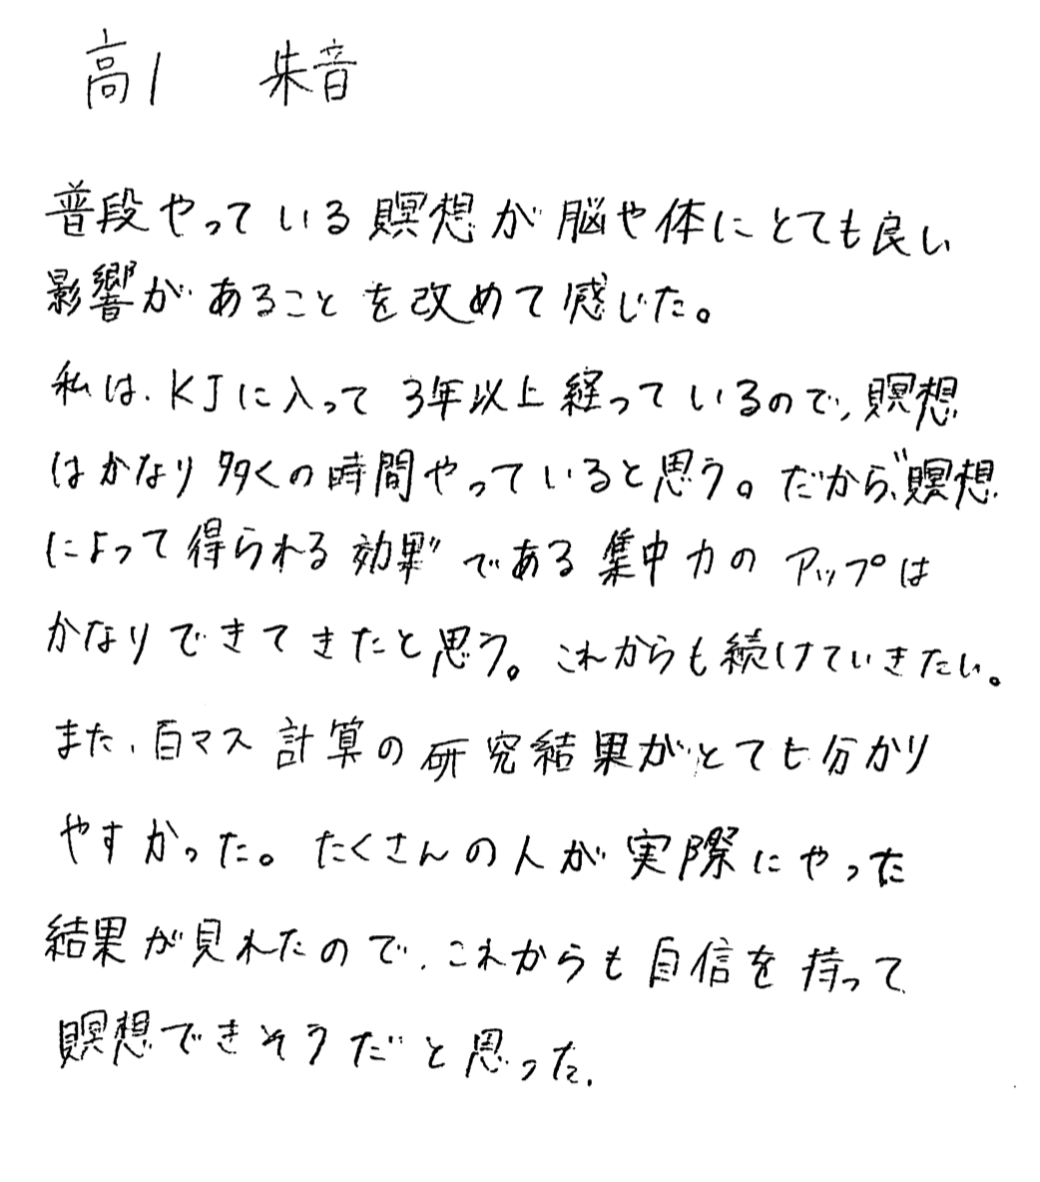 高1 朱音
普段やっている瞑想が脳や体にとても良い
影響があることを改めて感じた。
私は、KJに入って3年以上経っているので、瞑想
はかなり多くの時間やっていると思う。だから、"瞑想
によって得られる効果"である集中力のアップは
かなりできてきたと思う。これからも続けていきたい。
また、百マス計算の研究結果がとても分かり
やすかった。たくさんの人が実際にやった
結果が見れたので、これからも自信を持って
瞑想できそうだと思った。